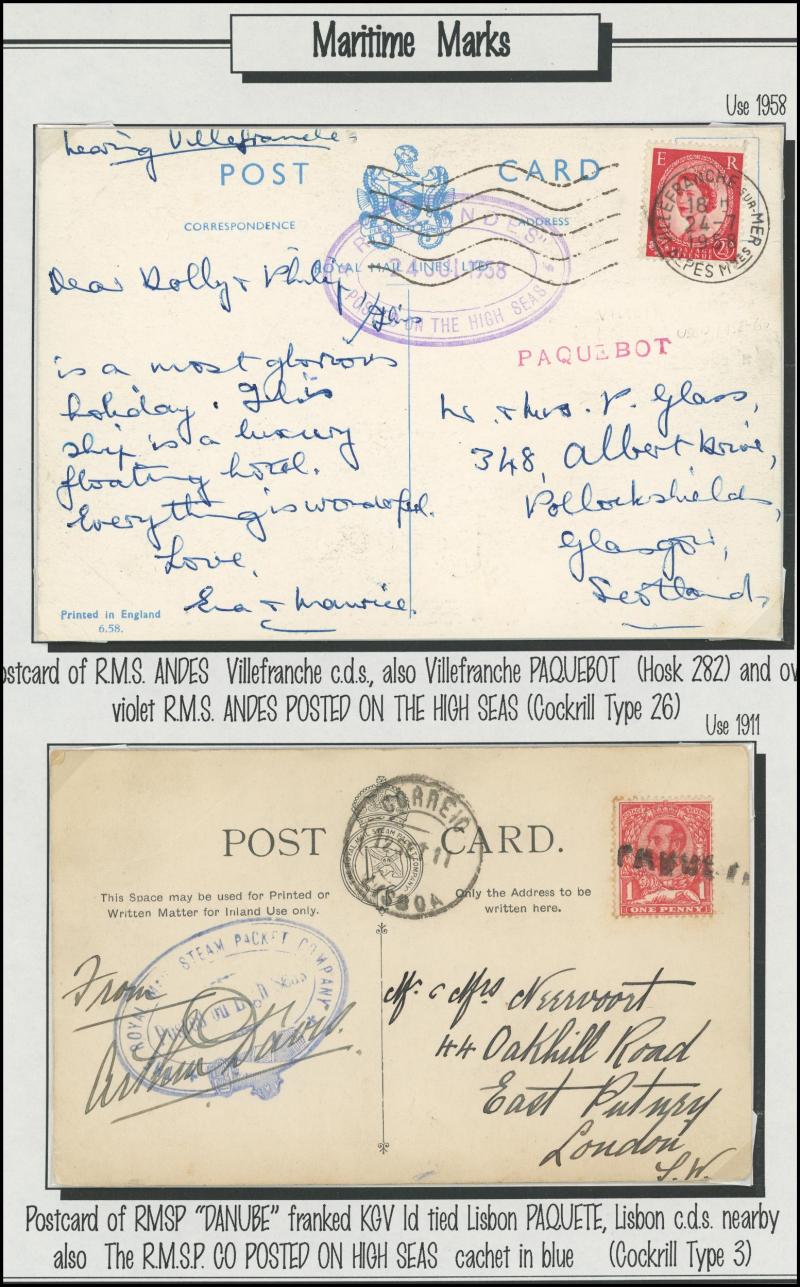 Maritime Marks
Use 1958
Leaving Villefranche
POST CARD
CORRESPONDENCE ADDRESS
ROYAL MAIL LINES, LTD.
"ANDES"
1958
POSTED ON THE HIGH SEAS
E R
2½
VILLEFRANCHE SUR-MER
18 H
24-7
1958
ALPES Mmes
PAQUEBOT
Dear Dolly & Philip, This
is a most glorious
holiday. This
ship is a luxury
floating hotel.
Everything is wonderful.
Love,
Eva & Maurice.
Mr. & Mrs. P. Glass,
348, Albert Drive,
Pollockshields,
Glasgow,
Scotland,
Printed in England
6.58.
ostcard of R.M.S. ANDES Villefranche c.d.s., also Villefranche PAQUEBOT (Hosk 282) and ov
violet R.M.S. ANDES POSTED ON THE HIGH SEAS (Cockrill Type 26)
Use 1911
POST CARD.
CORREIO
11
LISBOA
This Space may be used for Printed or
Written Matter for Inland Use only.
Only the Address to be
written here.
1 1
ONE PENNY
ROYAL MAIL STEAM PACKET COMPANY
Posted on High Seas
From
Arthur Davis.
Mr & Mrs Neervoort
44 Oakhill Road
East Putney
London
S.W.
Postcard of RMSP "DANUBE" franked KGV 1d tied Lisbon PAQUETE, Lisbon c.d.s. nearby
also The R.M.S.P. CO POSTED ON HIGH SEAS cachet in blue (Cockrill Type 3)